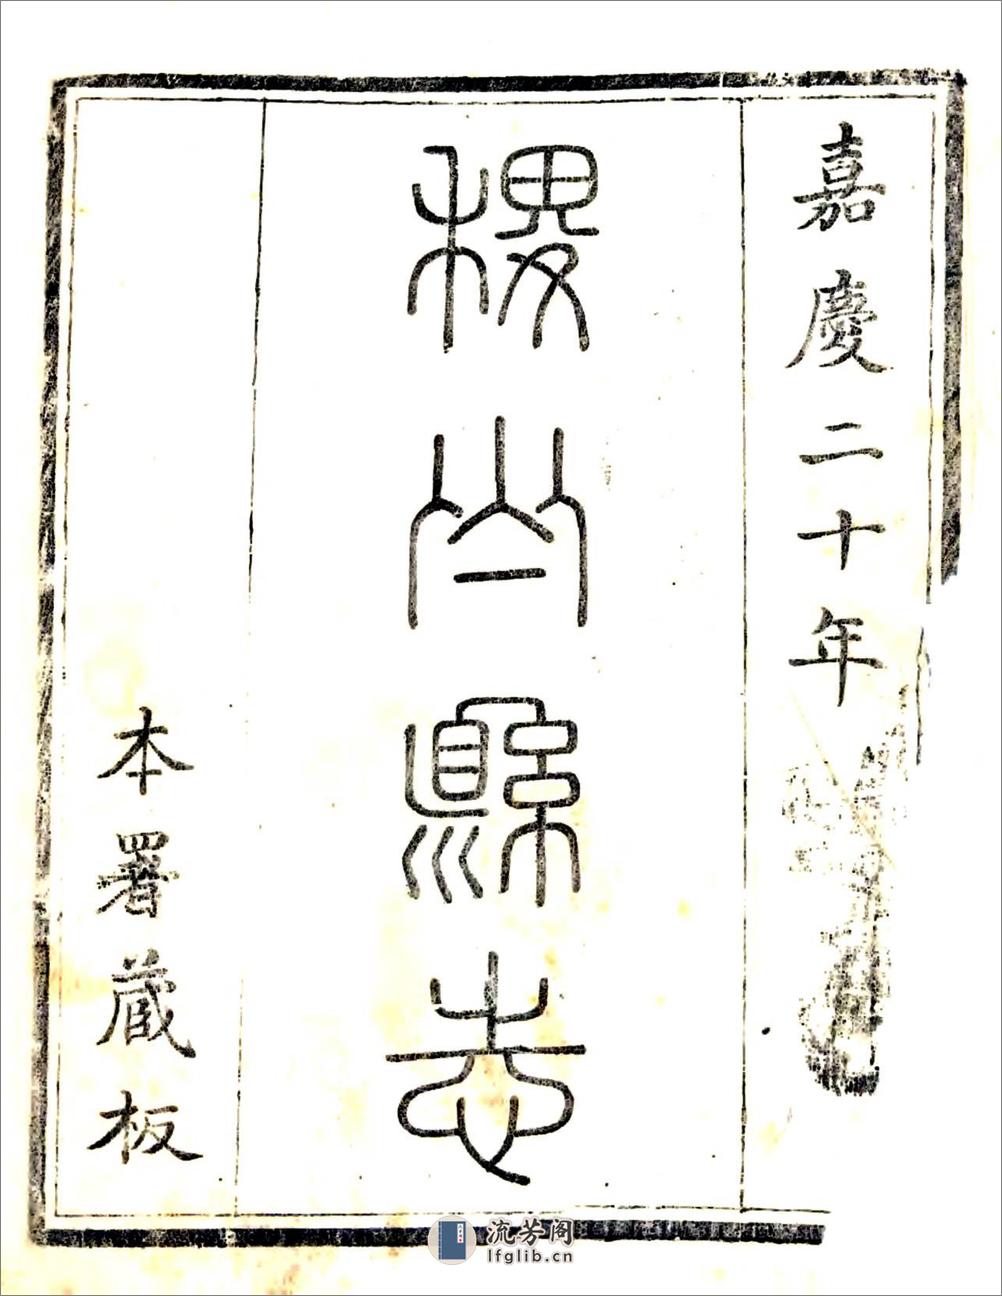 嘉慶二十年
稷山縣志
本署藏板
流芳阁
lfglib.cn